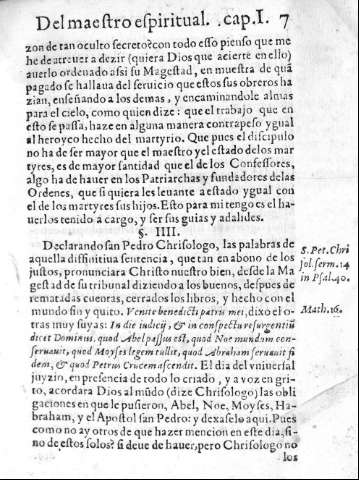 Del maestro espiritual. cap. I. 7
zon de tan oculto secreto? con todo esso pienso que me
he de atreuer a dezir (quiera Dios que acierte en ello)
auerlo ordenado assi su Magestad, en muestra de quã
pagado se hallaua del seruicio que estos sus obreros ha
zian, enseñando a los demas, y encaminandole almas
para el cielo, como quien dize: que el trabajo que en
esto se passa, haze en alguna manera contrapeso ygual
al heroyco hecho del martyrio. Que pues el discipulo
no ha de ser mayor que el maestro y el estado de los mar
tyres, es de mayor santidad que el de los Confessores,
algo ha de hauer en los Patriarchas y fundadores de las
Ordenes, que si quiera les leuante a estado ygual con
el de los martyres sus hijos. Esto para mi tengo es el ha-
uerlos tenido a cargo, y ser sus guias y adalides.
§. IIII.
Declarando san Pedro Chrisologo, las palabras de
aquella diffinitiua sentencia, que tan en abono de los
justos, pronunciara Christo nuestro bien, desde la Ma
gestad de su tribunal diziendo a los buenos, despues de
rematadas cuentas, cerrados los libros, y hecho con el
mundo fin y quito. Venite benedicti patris mei, dixo el o-
tras muy suyas: In die iudicij, & in conspectu resurgentiũ
dicet Dominus, quod Abel passus est, quod Noe mundum con-
seruauit, quod Moyses legem tullit, quod Abraham seruauit fi
dem, & quod Petrus Crucem ascendit. El dia del vniuersal
juyzio, en presencia de todo lo criado, y a voz en gri-
to, acordara Dios al mũdo (dize Chrisologo) las obli
gaciones en que le pusieron, Abel, Noe, Moyses, Ha-
braham, y el Apostol san Pedro: y dexaselo aqui. Pues
como no ay otros de que hazer mencion en este dia, si-
no de estos solos? si deue de hauer, pero Chrisologo no
los
S. Pet. Chri
sol. serm. 14
in Psal. 40.
Math. 16.